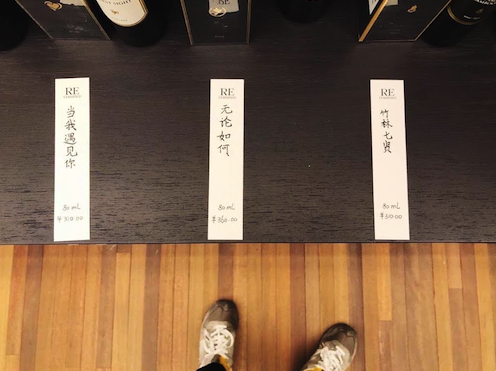 RE
当我遇见你
80 mL
¥310.00
RE
无论如何
80 mL
¥360.00
RE
竹林七贤
80 mL
¥310.00